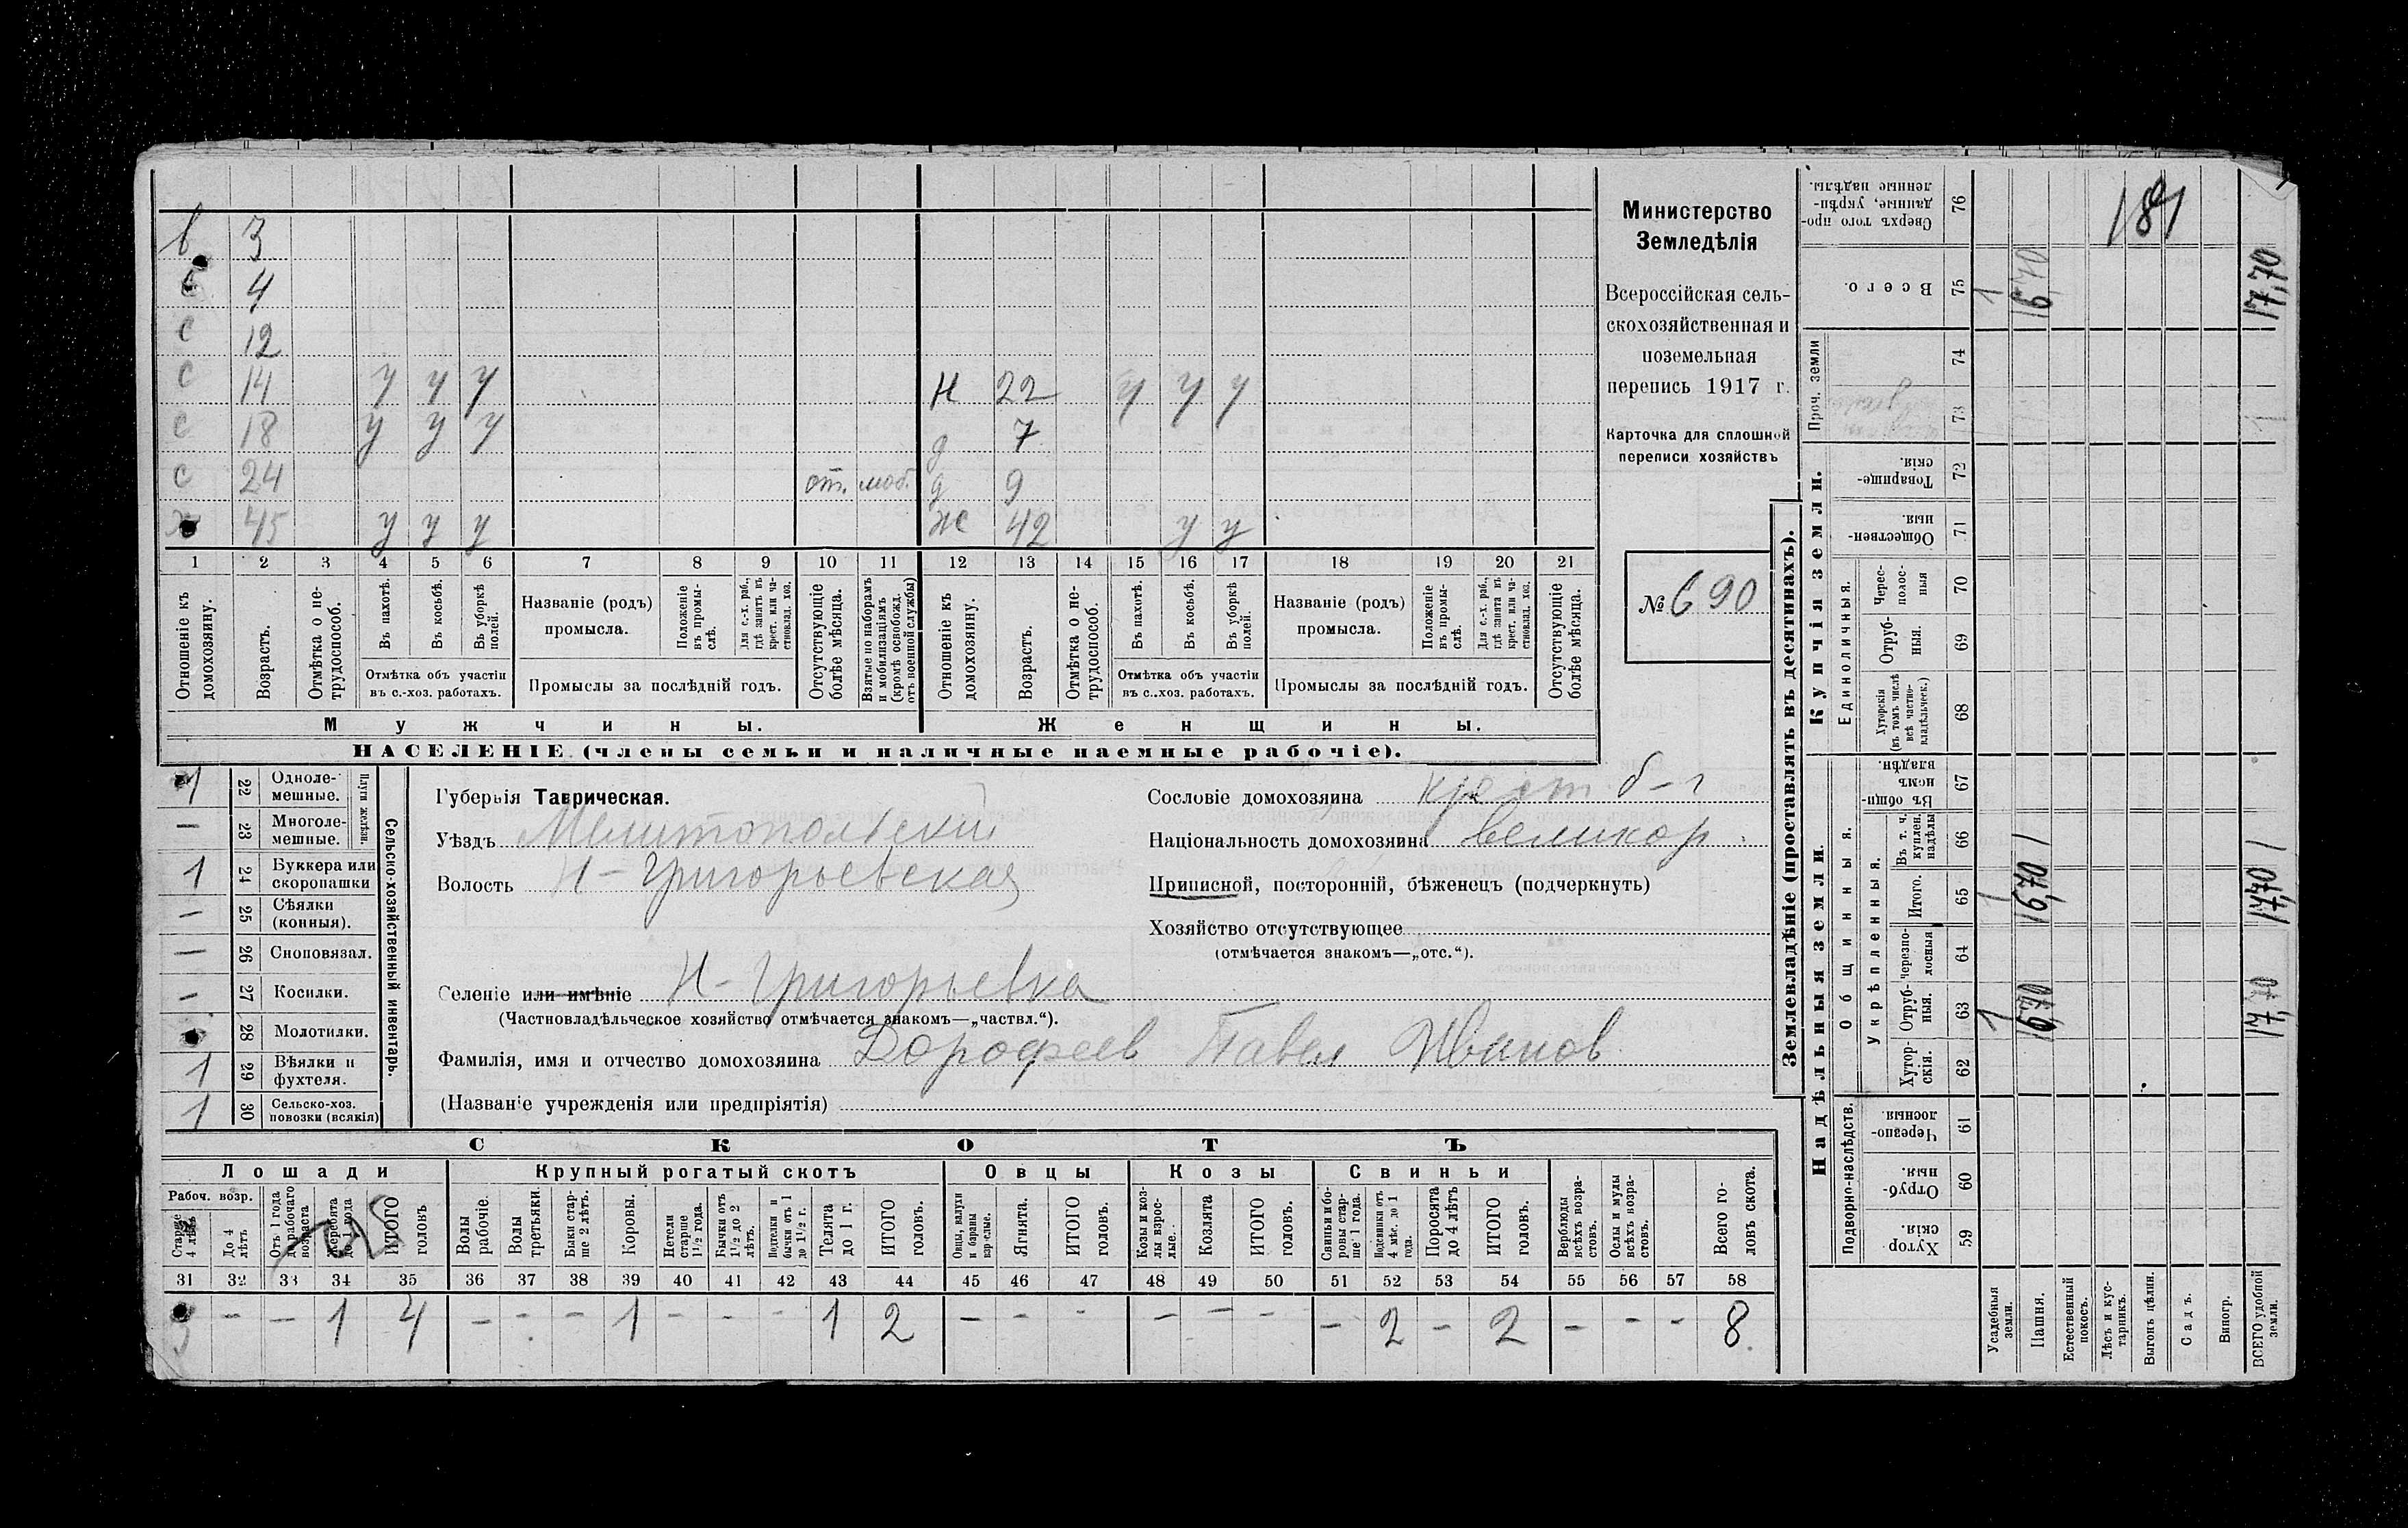 в 3
с 4
с 12
с 14 у у у н 22 у у у
с 18 у у у д 7
с 24 от. моб. д 9
х 45 у у у ж 42 у у
1 2 3 4 5 6 7 8 9 10 11 12 13 14 15 16 17 18 19 20 21
Отношеніе къ домохозяину.
Возрастъ.
Отмѣтка о не-трудоспособ.
Въ пахотѣ.
Въ косьбѣ.
Въ уборкѣ полей.
Отмѣтка объ участіи
въ с.-хоз. работахъ.
Названіе (родъ)
промысла.
Положеніе въ промы-слѣ.
Для с.-х. раб., гдѣ занятъ въ крест. или ча-стновлад. хоз.
Промыслы за послѣдній годъ.
Отсутствующіе болѣе мѣсяца.
Взятые по наборамъ и мобилизаціямъ (кромѣ освобожд. отъ военной службы)
Отношеніе къ домохозяину.
Возрастъ.
Отмѣтка о не-трудоспособ.
Въ пахотѣ.
Въ косьбѣ.
Въ уборкѣ полей.
Отмѣтка объ участіи
въ с.-хоз. работахъ.
Названіе (родъ)
промысла.
Положеніе въ промы-слѣ.
Для с.-х. раб., гдѣ занята въ крест. или ча-стновлад. хоз.
Промыслы за послѣдній годъ.
Отсутствующіе болѣе мѣсяца.
Мужчины. Женщины.
НАСЕЛЕНІЕ (члены семьи и наличные наемные рабочіе).
Министерство
Земледѣлія
Всероссійская сель-
скохозяйственная и
поземельная
перепись 1917 г.
Карточка для сплошной
переписи хозяйствъ
№ 690
1 22 Одноле-мешные.
— 23 Многоле-мешные.
Плуги желѣзн.
1 24 Буккера или скоропашки
— 25 Сѣялки (конныя).
— 26 Сноповязал.
— 27 Косилки.
28 Молотилки.
1 29 Вѣялки и фухтеля.
1 30 Сельско-хоз. повозки (всякія)
Сельско-хозяйственный инвентарь.
Губернія Таврическая.
Уѣздъ Мелитопольскій
Волость Н-Григорьевская
Селеніе или имѣніе Н-Григорьевка
(Частновладѣльческое хозяйство отмѣчается знакомъ—„частвл.“).
Фамилія, имя и отчество домохозяина Дорофеев Павел Иванов
(Названіе учрежденія или предпріятія)
Сословіе домохозяина крест. б-г
Національность домохозяина великор.
Приписной, посторонній, бѣженецъ (подчеркнуть)
Хозяйство отсутствующее
(отмѣчается знакомъ—„отс.“).
СКОТЪ
Лошади Крупный рогатый скотъ Овцы Козы Свиньи
Рабоч. возр.
Старше 4 лѣтъ
До 4 лѣтъ
Отъ 1 года до рабочаго возраста
Жеребята до 1 года
ИТОГО головъ
Волы рабочіе.
Волы третьяки.
Быки стар-ше 2 лѣтъ.
Коровы.
Нетели старше 1½ года.
Бычки отъ 1½ до 2 лѣтъ.
Подтелки и бычки отъ 1 до 1½ г.
Телята до 1 г.
ИТОГО головъ.
Овцы, валухи и бараны взрослые.
Ягнята.
ИТОГО головъ.
Козы и коз-лы взрос-лые.
Козлята
ИТОГО головъ.
Свиньи и бо-ровы стар-ше 1 года.
Подсвинки отъ 4 мѣс. до 1 года.
Поросята до 4 лѣтъ
ИТОГО головъ.
Верблюды всѣхъ возра-стовъ.
Ослы и мулы всѣхъ возра-стовъ.
Всего го-ловъ скота.
31 32 33 34 35 36 37 38 39 40 41 42 43 44 45 46 47 48 49 50 51 52 53 54 55 56 57 58
3 - - 1 4 - - - 1 - - - 1 2 - - - - - - - 2 - 2 - - - 8
Землевладѣніе (проставлять въ десятинахъ).
Купчія земли.
Надѣльныя земли.
Сверхъ того про-данные, укрѣп-ленные надѣлы. 76
181
Всего. 75 1 16,70 17,70
Проч. земли 74
73
Товарище-скія. 72
Обществен-ныя. 71
Единоличныя.
Черес-полос-ныя 70
Отруб-ныя. 69
Хуторскія (въ томъ числѣ всѣ частно-владѣльческ.) 68
Въ общин-номъ владѣн. 67
Общинныя.
Укрѣпленныя.
Въ т. ч. куплен. надѣлы 66
Итого. 65 1 16,70 17,70
Черезпо-лосныя 64
Отруб-ныя. 63 1 16,70 17,70
Хутор-скія. 62
Подворно-наслѣдств.
Черезпо-лосныя. 61
Отруб-ныя. 60
Хутор-скія. 59
Усадебныя земли.
Пашня.
Естественный покосъ.
Лѣсъ и кус-тарникъ.
Выгонъ цѣлин.
Садъ.
Виногр.
ВСЕГО удобной земли.